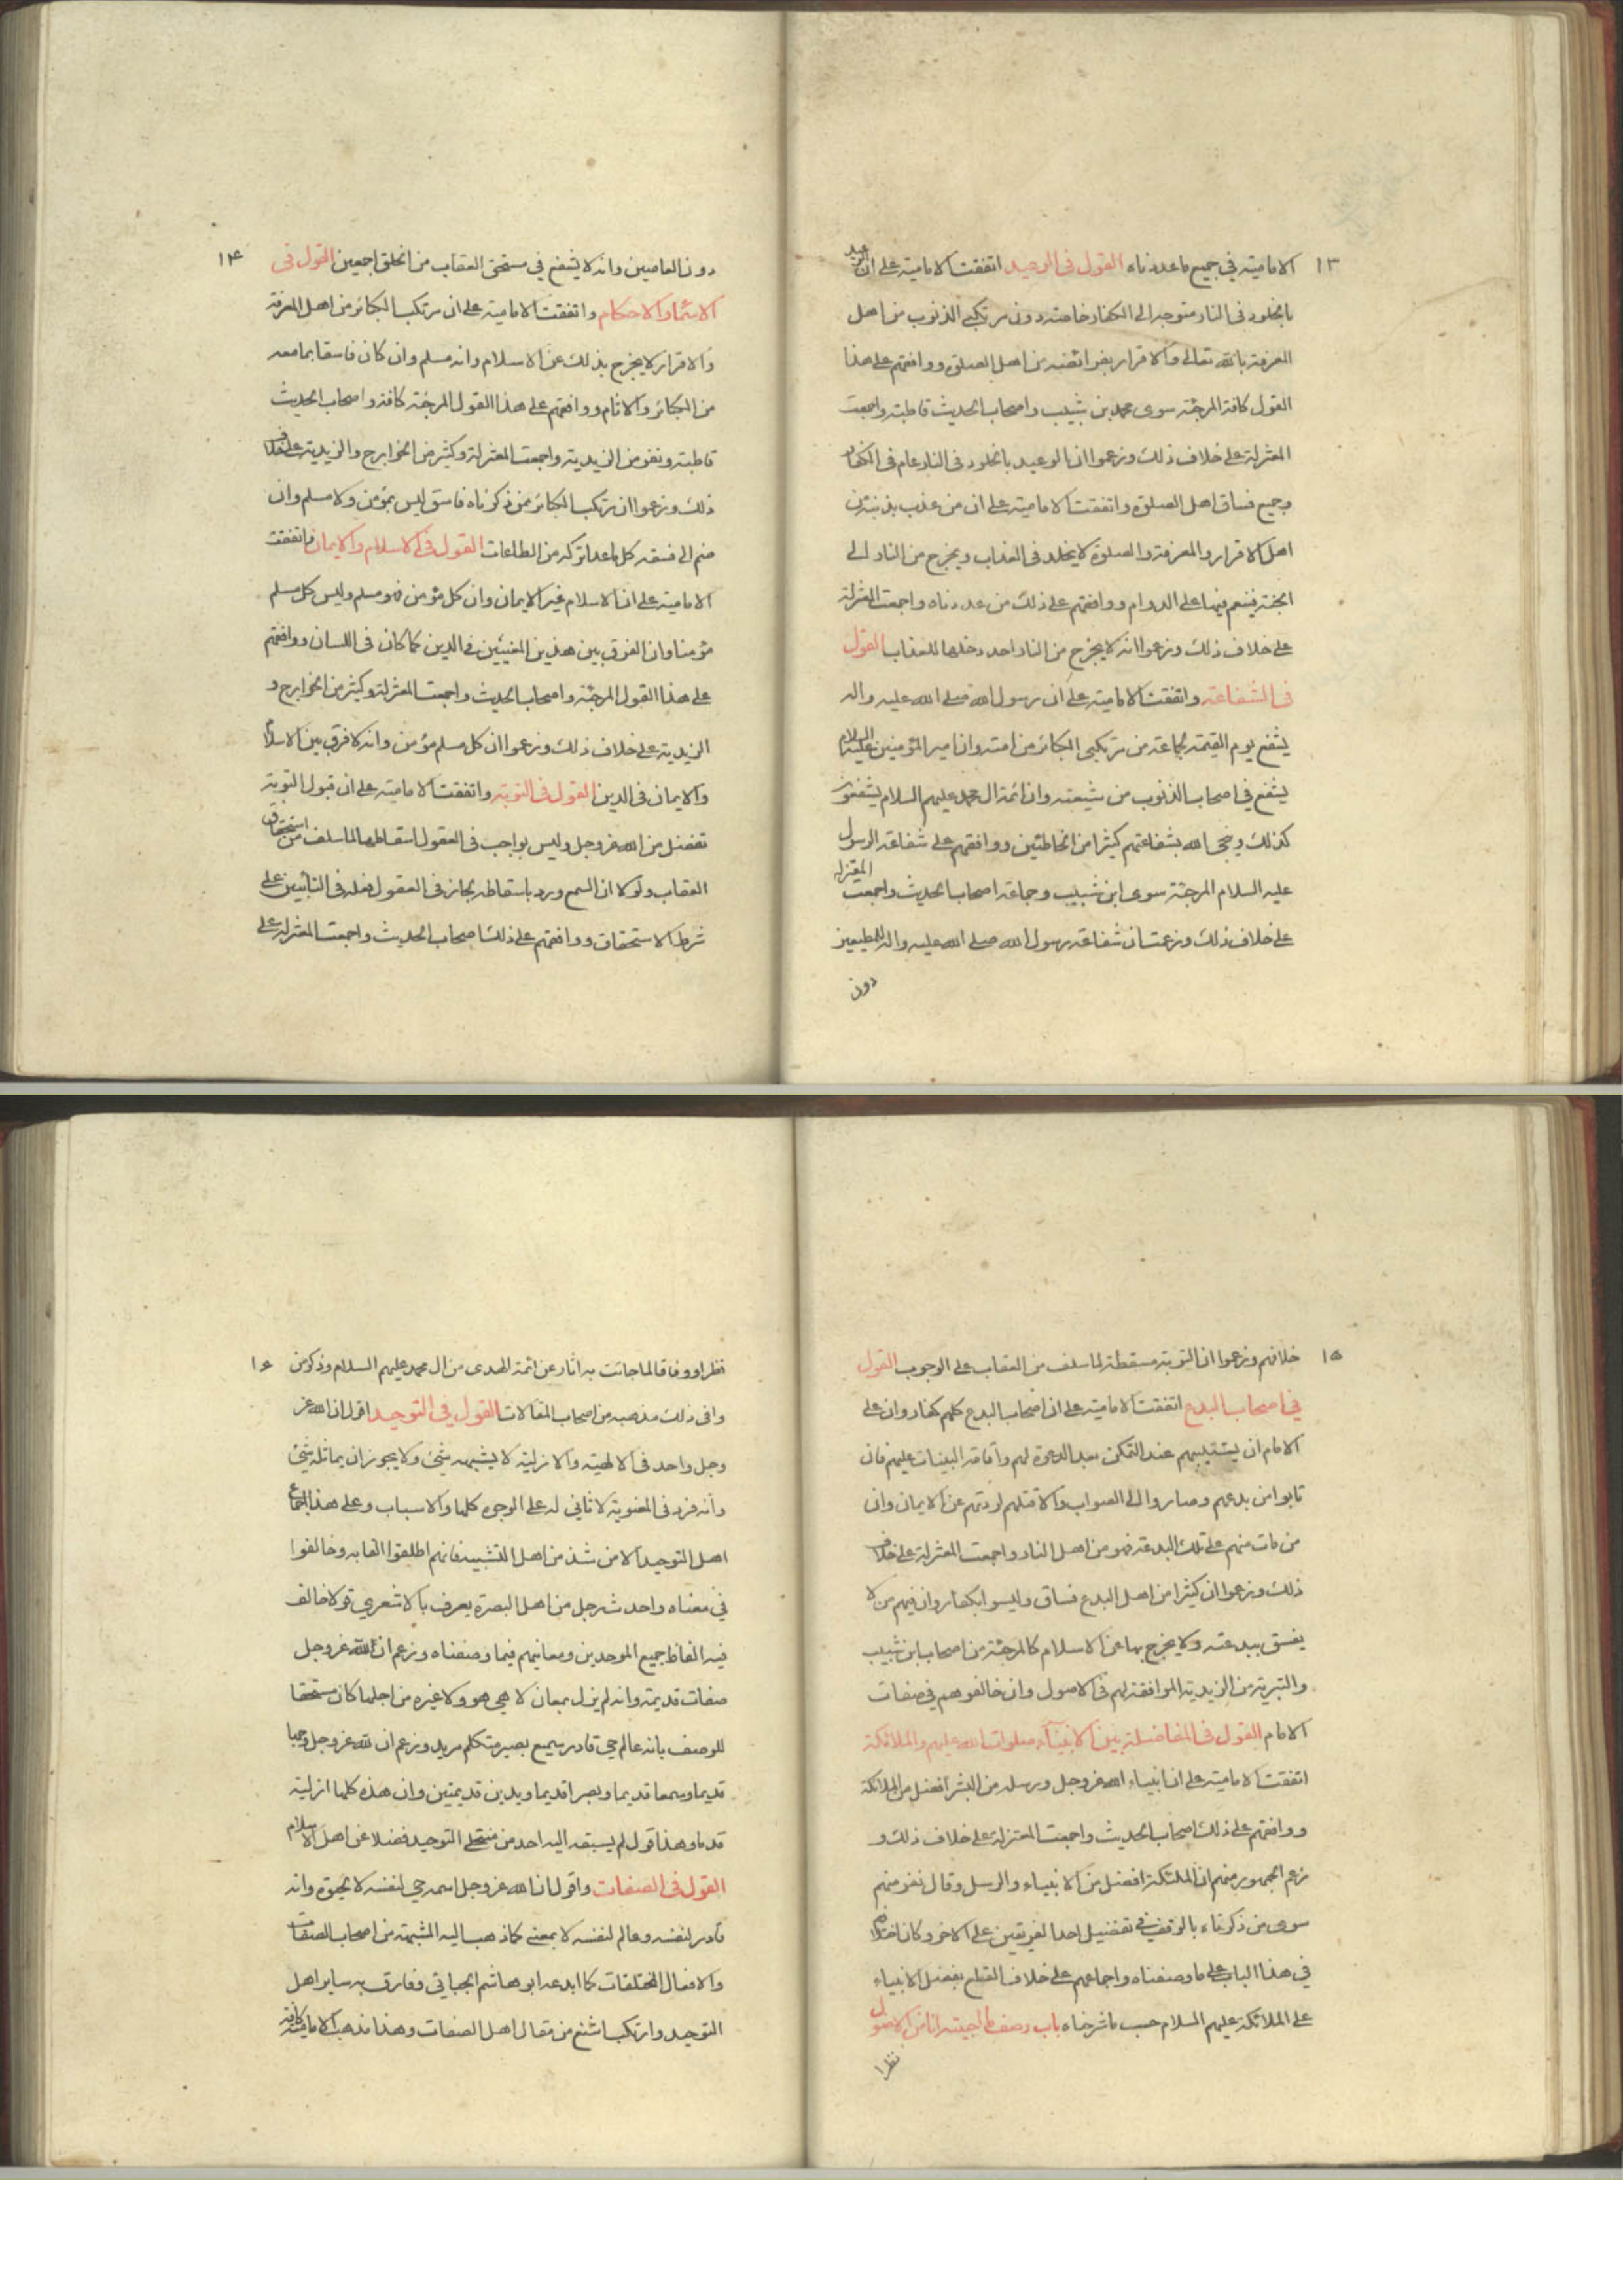 ١٣
الامامية في جميع ما عددناه القول في الوعيد اتفقت الامامية على ان الوعيد
بالخلود في النار متوجه الى الكفار خاصة دون مرتكبي الذنوب من اهل
المعرفة بالله تعالى والاقرار بفرائضه من اهل الصلوة ووافقتهم على هذا
القول كافة المرجئة سوى محمد بن شبيب واصحاب الحديث قاطبة واجمعت
المعتزلة على خلاف ذلك وزعموا ان الوعيد بالخلود في النار عام في الكفار
وجميع فساق اهل الصلوة واتفقت الامامية على ان من عذب بذنبه من
اهل الاقرار والمعرفة والصلوة لا يخلد في العذاب ويخرج من النار الى
الجنة فينعم فيها على الدوام ووافقتهم على ذلك من عددناه واجمعت المعتزلة
على خلاف ذلك وزعموا انه لا يخرج من النار احد دخلها للعذاب القول
في الشفاعة واتفقت الامامية على ان رسول الله صلى الله عليه واله
يشفع يوم القيمة لجماعة من مرتكبي الكبائر من امته وان امير المؤمنين عليه السلام
يشفع في اصحاب الذنوب من شيعته وان ائمة ال محمد عليهم السلام يشفعون
كذلك وينجي الله بشفاعتهم كثيرا من الخاطئين ووافقهم على شفاعة الرسول
عليه السلام المرجئة سوى ابن شبيب وجماعة اصحاب الحديث واجمعت المعتزلة
على خلاف ذلك وزعمت ان شفاعة رسول الله صلى الله عليه واله للمطيعين
دون
١٤
دون العاصين وانه لا يشفع في مستحق العقاب من الخلق اجمعين القول في
الاسماء والاحكام واتفقت الامامية على ان مرتكب الكبائر من اهل المعرفة
والاقرار لا يخرج بذلك عن الاسلام وانه مسلم وان كان فاسقا بما معه
من الكبائر والاثام ووافقتهم على هذا القول المرجئة كافة واصحاب الحديث
قاطبة ونفر من الزيدية واجمعت المعتزلة وكثير من الخوارج والزيدية على خلاف
ذلك وزعموا ان مرتكب الكبائر ممن ذكرناه فاسق ليس بمؤمن ولا مسلم وان
ضم الى فسقه كل ما عدا تركه من الطاعات القول في الاسلام والايمان واتفقت
الامامية على ان الاسلام غير الايمان وان كل مؤمن فهو مسلم وليس كل مسلم
مؤمنا وان الفرق بين هذين المعنيين في الدين كما كان في اللسان ووافقتهم
على هذا القول المرجئة واصحاب الحديث واجمعت المعتزلة وكثير من الخوارج و
الزيدية على خلاف ذلك وزعموا ان كل مسلم مؤمن وانه لا فرق بين الاسلام
والايمان في الدين القول في التوبة واتفقت الامامية على ان قبول التوبة
تفضل من الله عز وجل وليس بواجب في العقول اسقاطها لما سلف من استحقاق
العقاب ولولا ان السمع ورد باسقاطه لجاز في العقول فعله في التائبين على
شرط الاستحقاق ووافقتهم على ذلك اصحاب الحديث واجمعت المعتزلة على
١٥
خلافهم وزعموا ان التوبة مسقطة لما سلف من العقاب على الوجوب القول
في اصحاب البدع اتفقت الامامية على ان اصحاب البدع كلهم كفار وان على
الامام ان يستتيبهم عند التمكن بعد الدعوة لهم واقامة البينات عليهم فان
تابوا من بدعهم وصاروا الى الصواب والا قتلهم لردتهم عن الايمان وان
من مات منهم على تلك البدعة فهو من اهل النار واجمعت المعتزلة على خلاف
ذلك وزعموا ان كثيرا من اهل البدع فساق وليسوا بكفار وان فيهم من لا
يفسق ببدعته ولا يخرج بها عن الاسلام كالمرجئة من اصحاب ابن شبيب
والبترية من الزيدية الموافقة لهم في الاصول وان خالفوهم في صفات
الامام القول في المفاضلة بين الانبياء صلوات الله عليهم والملائكة
اتفقت الامامية على ان انبياء الله عز وجل ورسله من البشر افضل من الملائكة
ووافقتهم على ذلك اصحاب الحديث واجمعت المعتزلة على خلاف ذلك و
زعم الجمهور منهم ان الملئكة افضل من الانبياء والرسل وقال نفر منهم
سوى من ذكرناه بالوقف في تفضيل احد الفريقين على الاخر وكان اختلافهم
في هذا الباب على ما وصفناه واجماعهم على خلاف القطع بفضل الانبياء
على الملائكة عليهم السلام حسب ما شرحناه باب وصف ما اجتبيته انا من الاصول
نظرا
١٦
نظرا ووفاقا لما جائت به اثار عن ائمة الهدى من ال محمد عليهم السلام وذكر من
وافق ذلك مذهبه من اصحاب المقالات القول في التوحيد اقول ان الله عز
وجل واحد في الالهية والازلية لا يشبهه شئ ولا يجوز ان يماثله شئ
وانه فرد في المعبودية لا ثاني له على الوجوه كلها والاسباب وعلى هذا اجماع
اهل التوحيد الا من شذ من اهل التشبيه فانهم اطلقوا الفاظه وخالفوا
في معناه واحدث رجل من اهل البصرة يعرف بالاشعري قولا خالف
فيه الفاظ جميع الموحدين ومعانيهم فيما وصفناه وزعم ان لله عز وجل
صفات قديمة وانه لم يزل بمعان لا هي هو ولا غيره من اجلها كان مستحقا
للوصف بانه عالم حي قادر سميع بصير متكلم مريد وزعم ان لله عز وجل وجها
قديما وسمعا قديما وبصرا قديما ويدين قديمتين وان هذه كلها ازلية
قدماء وهذا قول لم يسبقه اليه احد من منتحلي التوحيد فضلا عن اهل الاسلام
القول في الصفات واقول ان الله عز وجل اسمه حي لنفسه لا بحيوة وانه
قادر لنفسه وعالم لنفسه لا بمعنى كما ذهب اليه المشبهة من اصحاب الصفات
والافعال المختلفات كما ابدعه ابو هاشم الجبائي وفارق به ساير اهل
التوحيد وارتكب اشنع من مقال اهل الصفات وهذا مذهب الامامية كافة